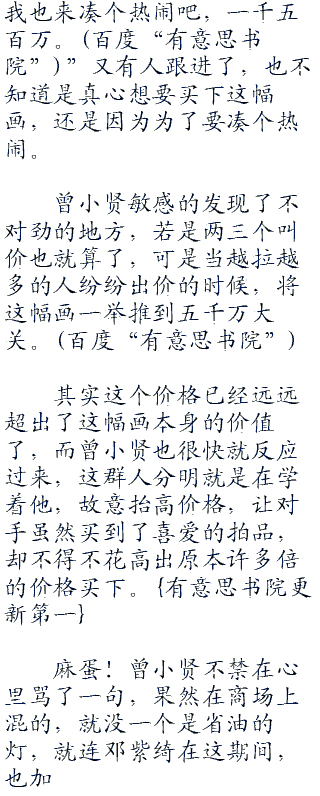 我也来凑个热闹吧，一千五
百万。(百度“有意思书
院”)”又有人跟进了，也不
知道是真心想要买下这幅
画，还是因为为了要凑个热
闹。
曾小贤敏感的发现了不
对劲的地方，若是两三个叫
价也就算了，可是当越拉越
多的人纷纷出价的时候，将
这幅画一举推到五千万大
关。(百度“有意思书院”)
其实这个价格已经远远
超出了这幅画本身的价值
了，而曾小贤也很快就反应
过来，这群人分明就是在学
着他，故意抬高价格，让对
手虽然买到了喜爱的拍品，
却不得不花高出原本许多倍
的价格买下。{有意思书院更
新第一}
麻蛋！曾小贤不禁在心
里骂了一句，果然在商场上
混的，就没一个是省油的
灯，就连邓紫绮在这期间，
也加